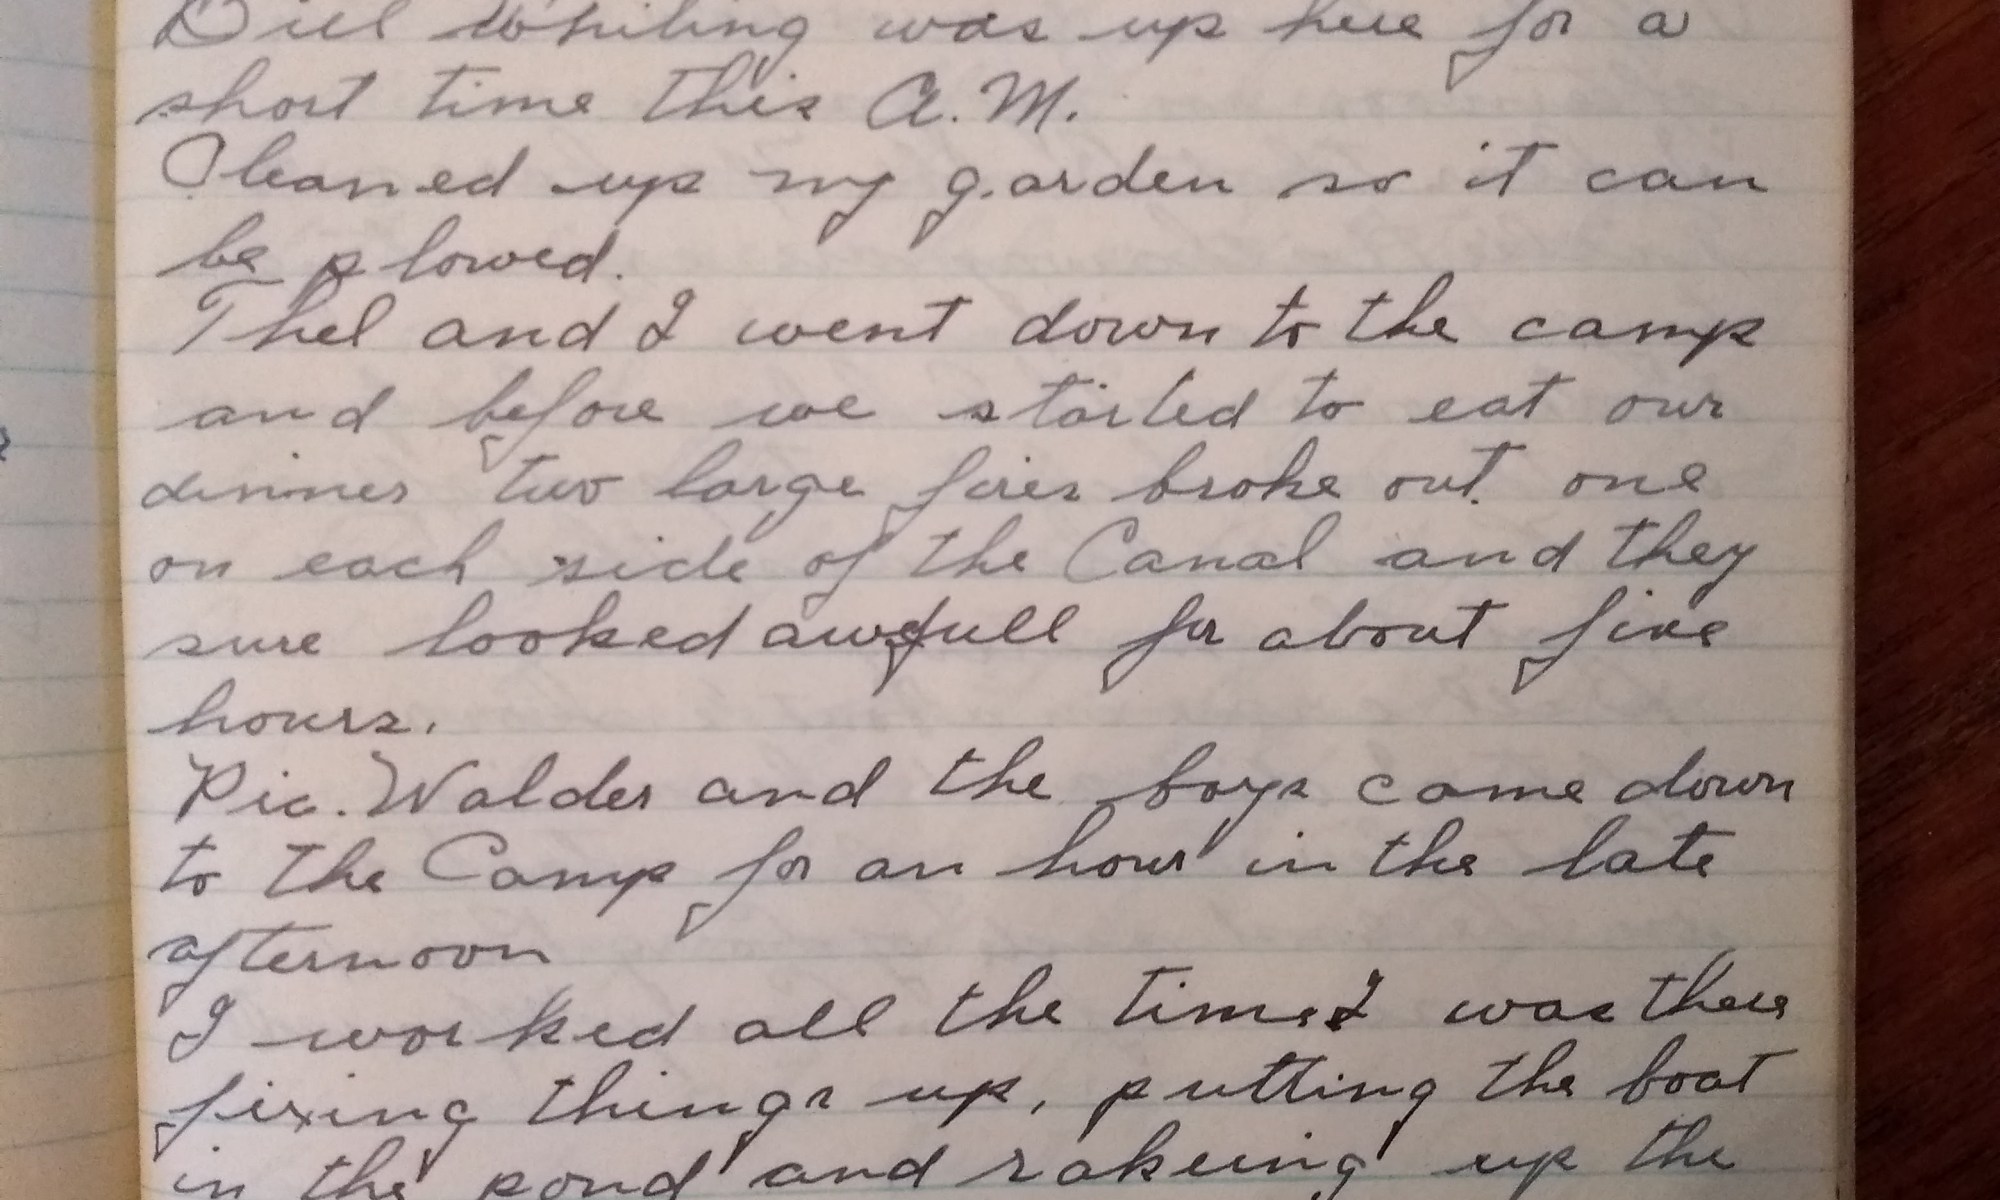 Bill Whiting was up here for a
short time this A.M.
Cleaned up my garden so it can
be plowed.
Thel and I went down to the camp
and before we started to eat our
dinner two large fires broke out one
on each side of the Canal and they
sure looked awfull for about five
hours.
Pic. Walder and the boys came down
to the Camp for an hour in the late
afternoon
I worked all the time I was there
fixing things up, putting the boat
in the pond and rakeing up the